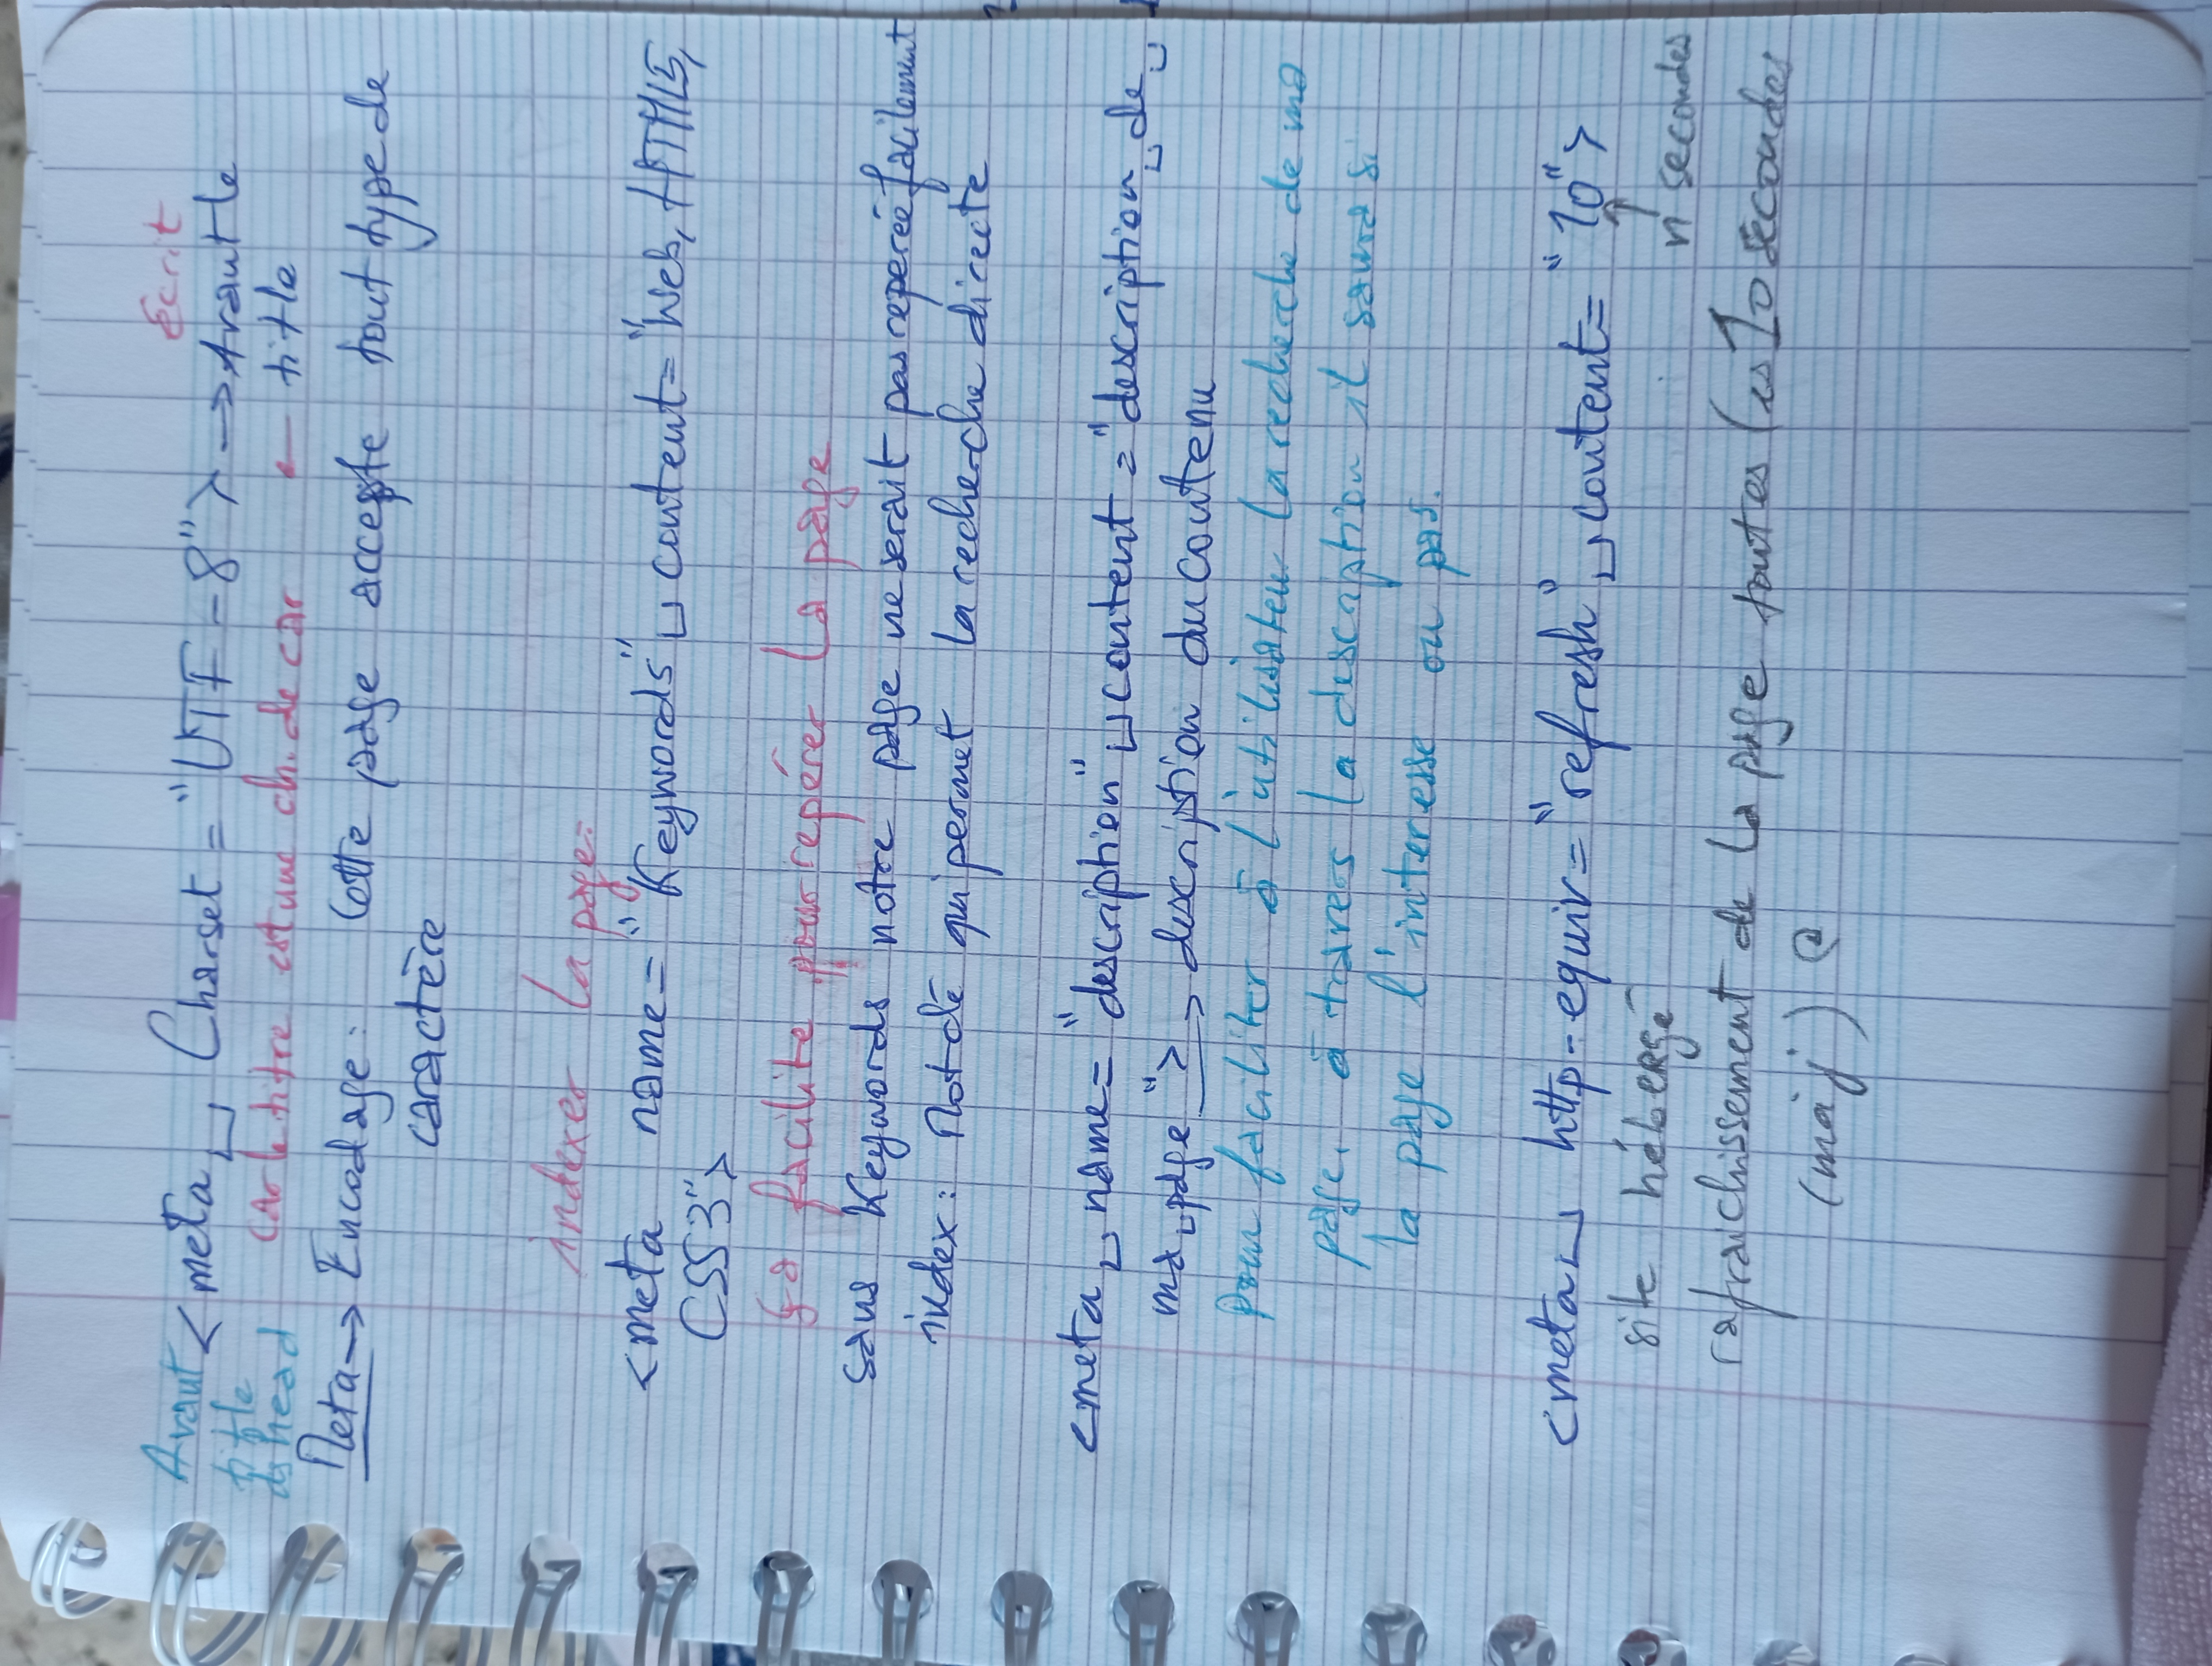 Avant
title
ds head
Ecrit
<meta␣ Charset = "UTF-8"> → Avant le
car le titre est une ch. de car ← title
Meta → Encodage : Cette page accepte tout type de
caractère
indexer la page :
<meta name = "Keywords"␣content = "Web, HTML5,
CSS3">
ça facilite pour repérer la page
sans Keywords notre page ne serait pas reperée facilement
index : Mot clé qui permet la recherche directe
<meta␣name = "description"␣content = "description␣de␣
ma␣page"> → description du contenu
Pour faciliter à l'utilisateur la recherche de ma
page, à travers la description il saura si
la page l'interesse ou pas.
<meta␣ http-equiv = "refresh"␣content = "10">
site hébergé
↑
n secondes
rafraichissement de la page toutes les 10 secondes
(màj)